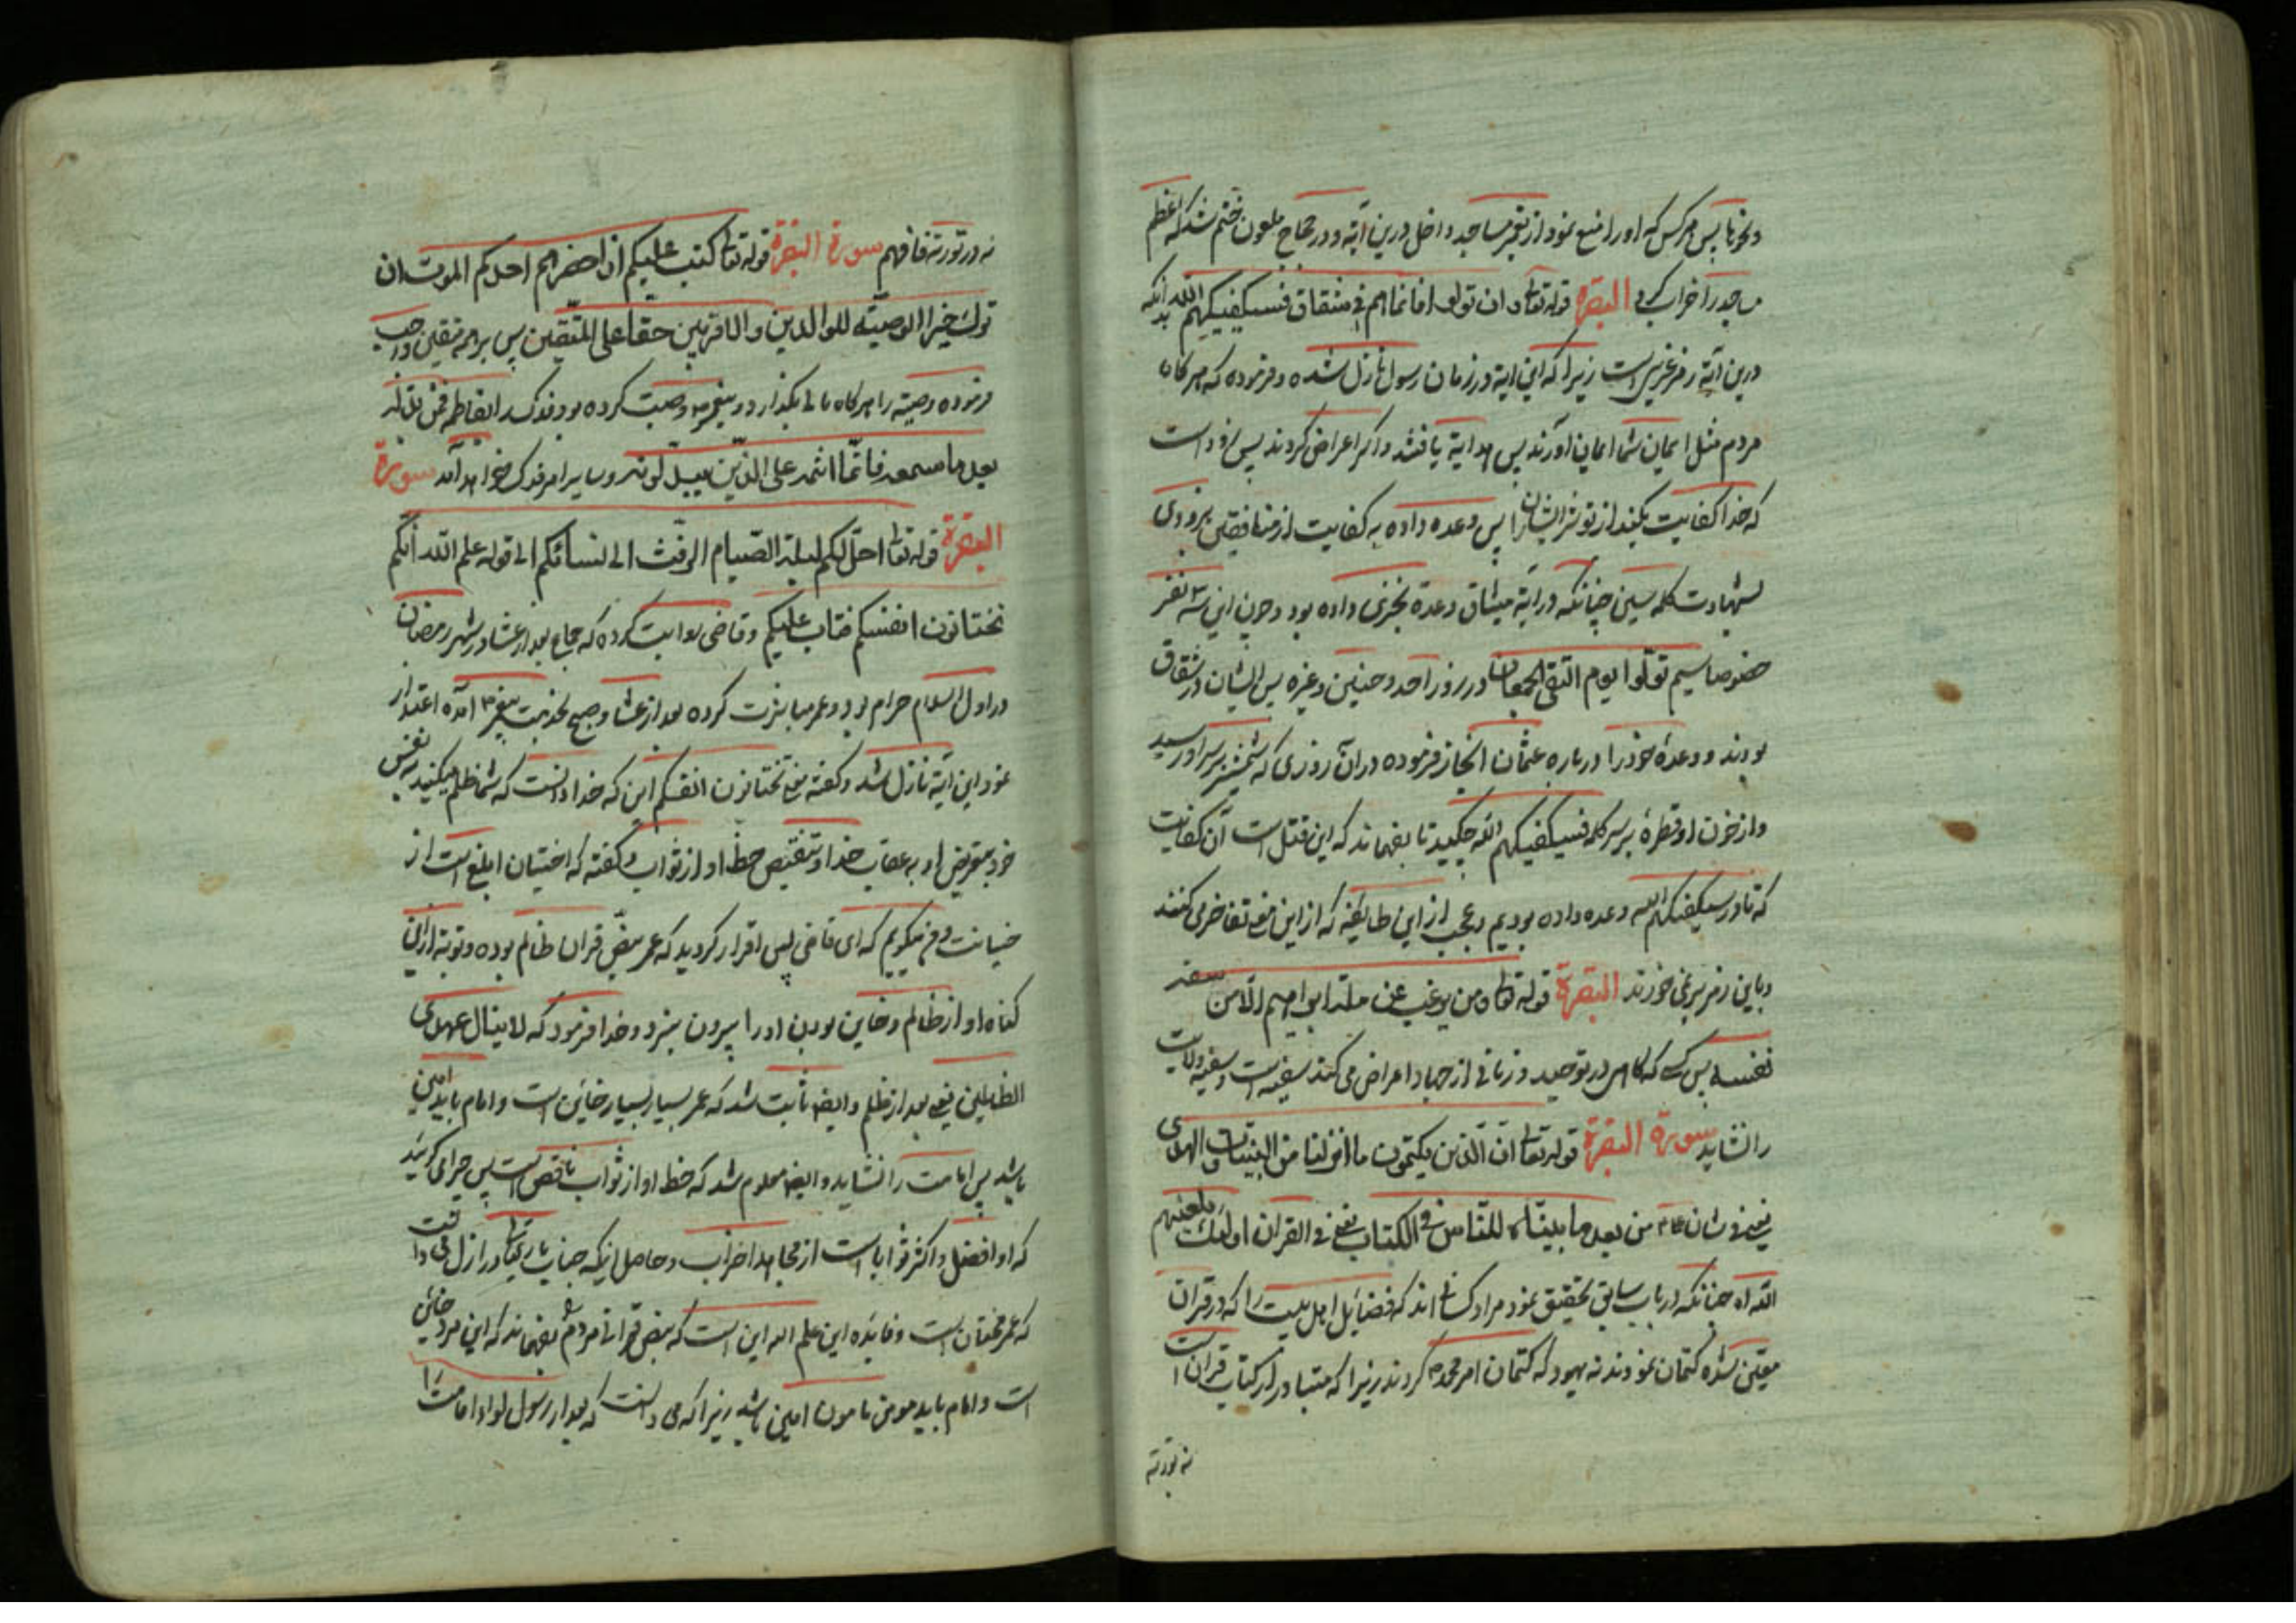 پس هرکس که او را منع نمود از تعمیر مساجد داخل درین آیه و در حجاج ملعون ختم شد که اعظم
مساجد را خراب کرد البقره قوله تعا وان تولوا فانما هم فی شقاق فسیکفیکهم الله بدانکه
درین آیة رمز عزیز است زیرا که این آیة در زمان رسول نازل شده و فرموده که هرکاه
مردم مثل ایمان شما ایمان آورند پس هدایة یافتند واکر اعراض کردند پس زود است
که خدا کفایت بکند از تو شر ایشانرا پس وعده داده به کفایت از منافقین بزودی
بشهادت کلمه سین چنانکه در آیة میثاق وعدة بخزی داده بود و چون این سه نفر
خصوصا سیم تولوا یوم التقی الجمعان در روز احد و حنین وغیره پس ایشان در شقاق
بودند و وعدۀ خود را درباره عثمان انجاز فرموده در آن روزی که شمشیر بر سر او رسید
واز خون او قطرۀ بر سر کلمه فسیکفیکهم الله چکید تا بفهماند که این قتل است آن کفایت
که تا در سیکفیکهم الله وعده داده بودیم و عجب از این طایفه که از این معنی تفاخر می کنند
وباین رمز بر نمی خورند البقرة قوله تعا ومن یرغب عن ملة ابراهیم الا من سفه
نفسه پس کسی که کاهی در توحید و زمانی از جهاد اعراض می کند سفیه است و سفیه ولایت
را نشاید سورة البقرة قوله تعا ان الذین یکتمون ما انزلنا من البینات و الهدی
یعنی فی شان علی من بعد ما بیناه للناس فی الکتاب یعنی فی القران اولئک یلعنهم
الله اه چنانکه در باب سابق تحقیق نمود مراد کسانی اند که فضایل اهل بیت را که در قران
مبین شده کتمان نمودند نه یهود که کتمان امر محمد کردند زیرا که متبادر از کتاب قران است
نه تورته
نه در تورته فافهم سورة البقرة قوله تعا کتب علیکم اذا حضر احدکم الموت ان
ترک خیرا الوصیته للوالدین والاقربین حقا علی المتقین پس بر همه متقین واجب
فرموده وصیته را هرکاه مالی بکذارد و پیغمبر وصیت کرده بود فدک را لفاطمه فمن بدله
بعد ما سمعه فانما اثمه علی الذین یبدلونه و سایر امر فدک خواهد آمد سورة
البقرة قوله تعا احل لکم لیلة الصیام الرفث الی نسائکم الی قوله علم الله انکم
تختانون انفسکم فتاب علیکم وقاضی روایت کرده که جماع بعد از عشا در شهر رمضان
در اول اسلام حرام بود و عمر مباشرت کرده بعد از عشا و صبح بخدمت پیغمبر آمده اعتذار
نمود این آیة نازل شد وکفته معنی تختانون انفسکم این که خدا دانست که شما ظلم میکنید به نفس
خود بتعریض او به عقاب خدا و تنقیص حظ او از ثواب وکفته که اختیان ابلغ است از
خیانت و من میکویم که ای قاضی پس اقرار کردید که عمر بنص قران ظالم بوده و توبة از این
کناه او از ظالم و خاین بودن او را بیرون نبرد و خدا فرمود که لا ینال عهدی
الظالمین یعنی بعد از ظلم وایضا ثابت شد که عمر بسیار بسیار خاین است و امام باید امین
باشد پس امامت را نشاید و ایضا معلوم شد که حظ او از ثواب ناقص است پس چرا می کوئید
که او افضل و اکثر ثوابا است از مجاهد احزاب و حاصل اینکه جناب باریتعا در ازل می دانست
که عمر مختان است و فایده این علم اله این است که بنص قرانی مردم بفهماند که این مرد خائن
است و امام باید مومن مامون امین باشد زیرا که می دانست که بعد از رسول او ادا امامت را